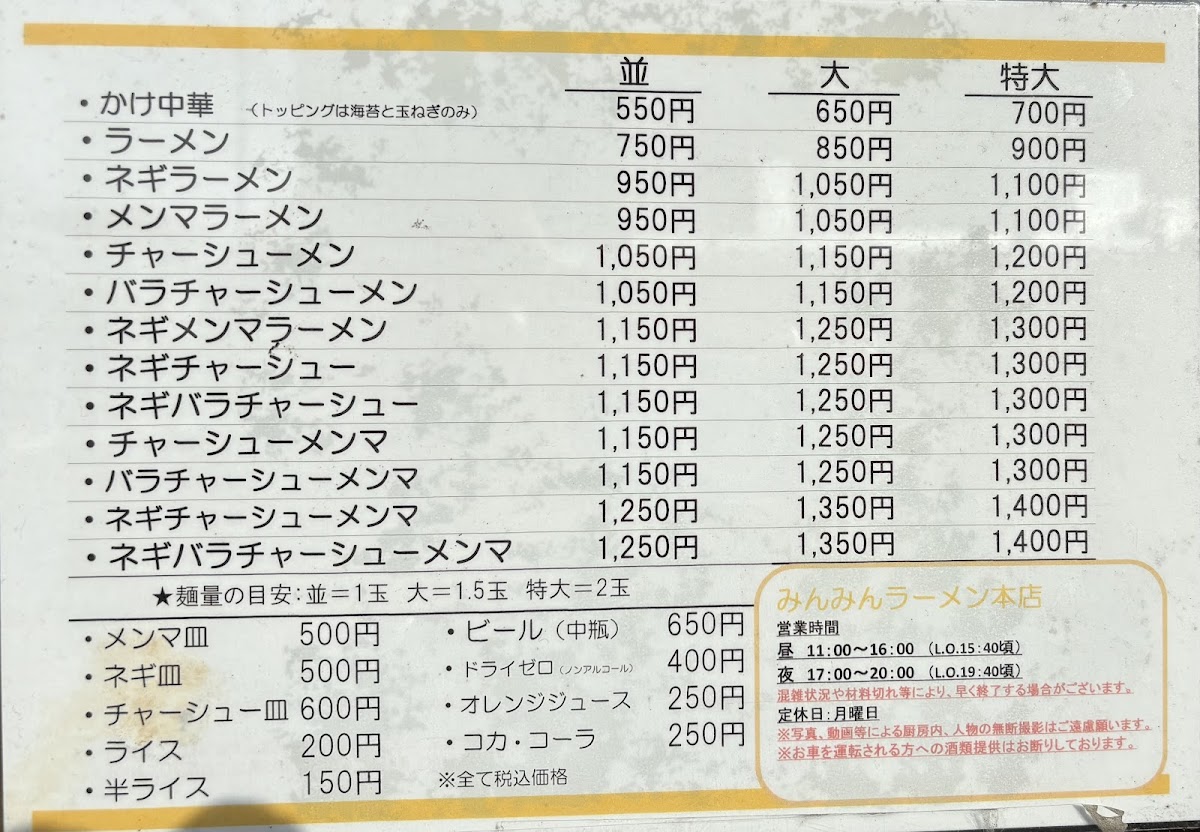 並 大 特大
・かけ中華 (トッピングは海苔と玉ねぎのみ) 550円 650円 700円
・ラーメン 750円 850円 900円
・ネギラーメン 950円 1,050円 1,100円
・メンマラーメン 950円 1,050円 1,100円
・チャーシューメン 1,050円 1,150円 1,200円
・バラチャーシューメン 1,050円 1,150円 1,200円
・ネギメンマラーメン 1,150円 1,250円 1,300円
・ネギチャーシュー 1,150円 1,250円 1,300円
・ネギバラチャーシュー 1,150円 1,250円 1,300円
・チャーシューメンマ 1,150円 1,250円 1,300円
・バラチャーシューメンマ 1,150円 1,250円 1,300円
・ネギチャーシューメンマ 1,250円 1,350円 1,400円
・ネギバラチャーシューメンマ 1,250円 1,350円 1,400円
★麺量の目安:並=1玉 大=1.5玉 特大=2玉
・メンマ皿 500円
・ネギ皿 500円
・チャーシュー皿 600円
・ライス 200円
・半ライス 150円
・ビール(中瓶) 650円
・ドライゼロ(ノンアルコール) 400円
・オレンジジュース 250円
・コカ・コーラ 250円
※全て税込価格
みんみんラーメン本店
営業時間
昼 11:00〜16:00 (L.O.15:40頃)
夜 17:00〜20:00 (L.O.19:40頃)
混雑状況や材料切れ等により、早く終了する場合がございます。
定休日:月曜日
※写真、動画等による厨房内、人物の無断撮影はご遠慮願います。
※お車を運転される方への酒類提供はお断りしております。